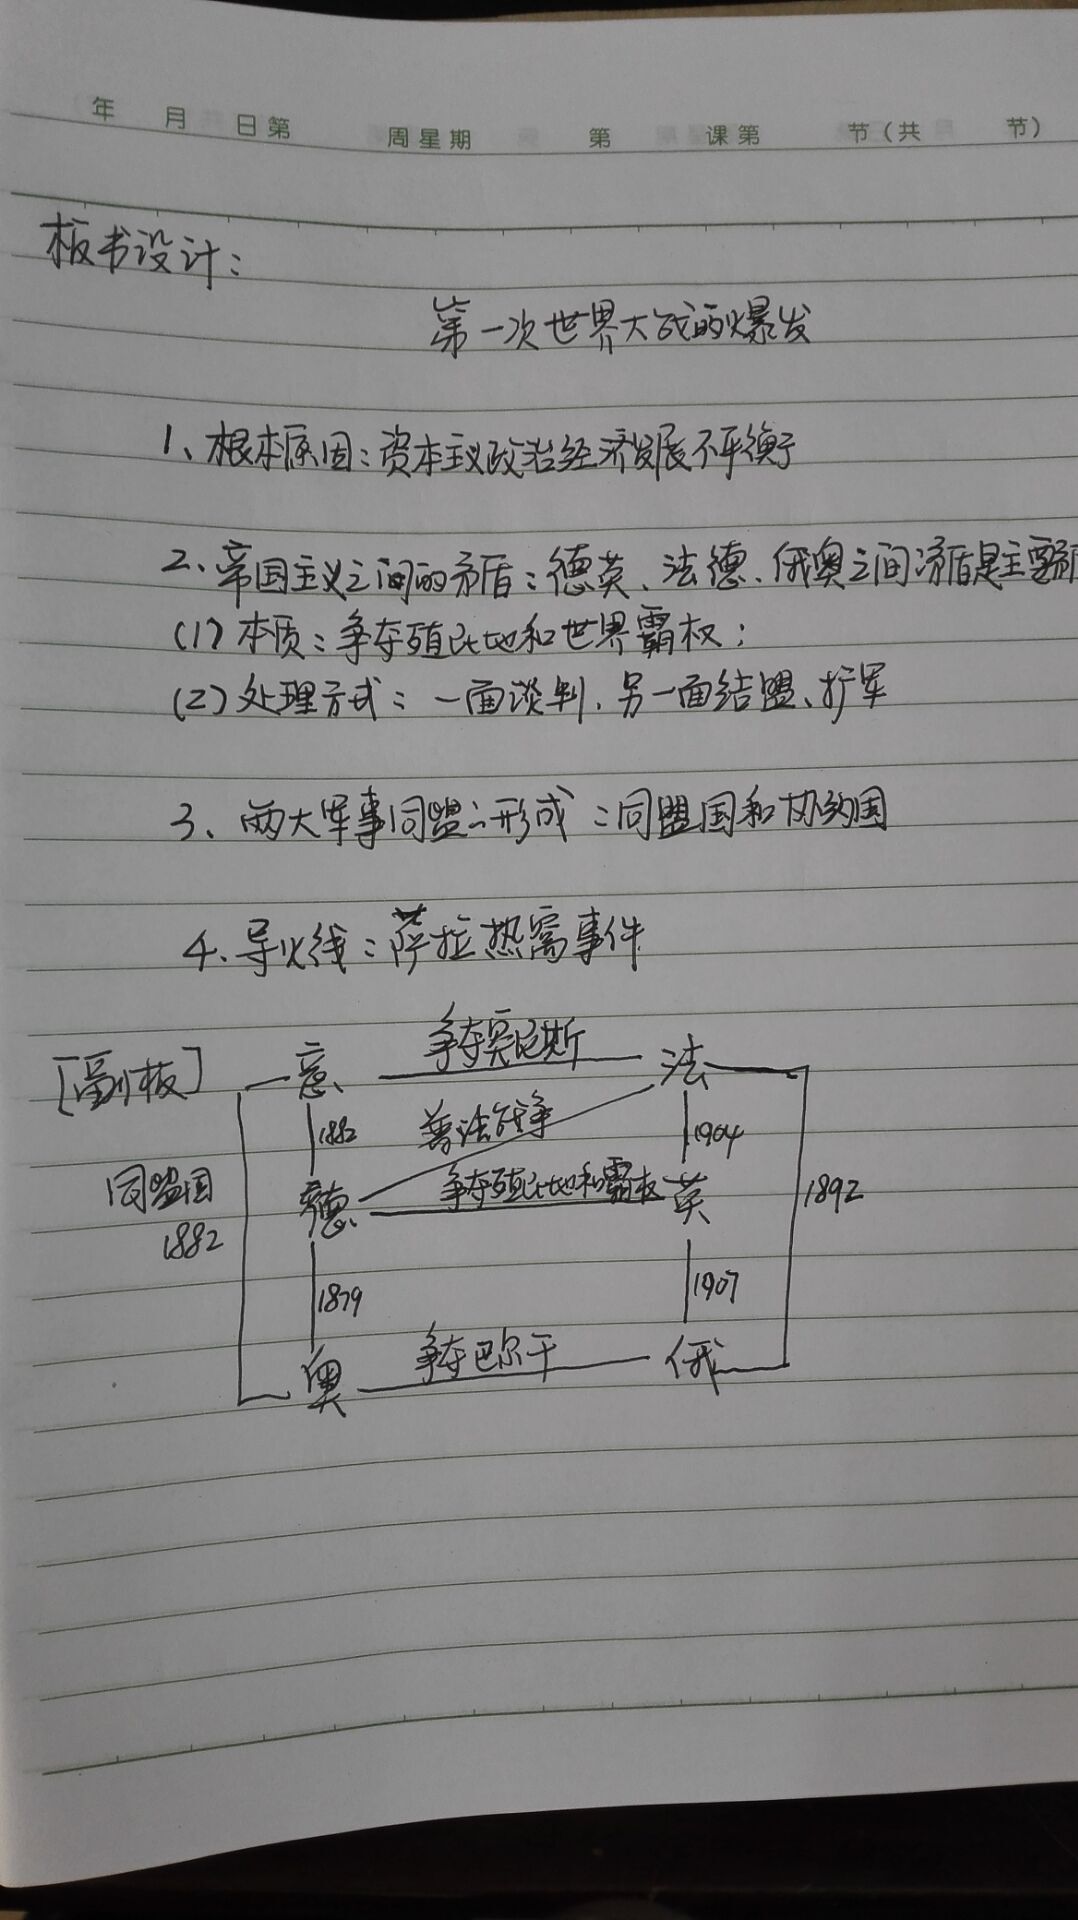 年 月 日第 周星期 第 课第 节(共 节)
板书设计:
第一次世界大战的爆发
1、根本原因:资本主义政治经济发展不平衡
2、帝国主义之间的矛盾:德英、法德、俄奥之间矛盾是主要矛
(1)本质:争夺殖民地和世界霸权;
(2)处理方式:一面谈判,另一面结盟、扩军
3、两大军事同盟之形成:同盟国和协约国
4、导火线:萨拉热窝事件
[副板] 意 争夺突尼斯 法
1882 普法战争 1904
同盟国 德 争夺殖民地和霸权 英 1892
1882
1879 1907
奥 争夺巴尔干 俄